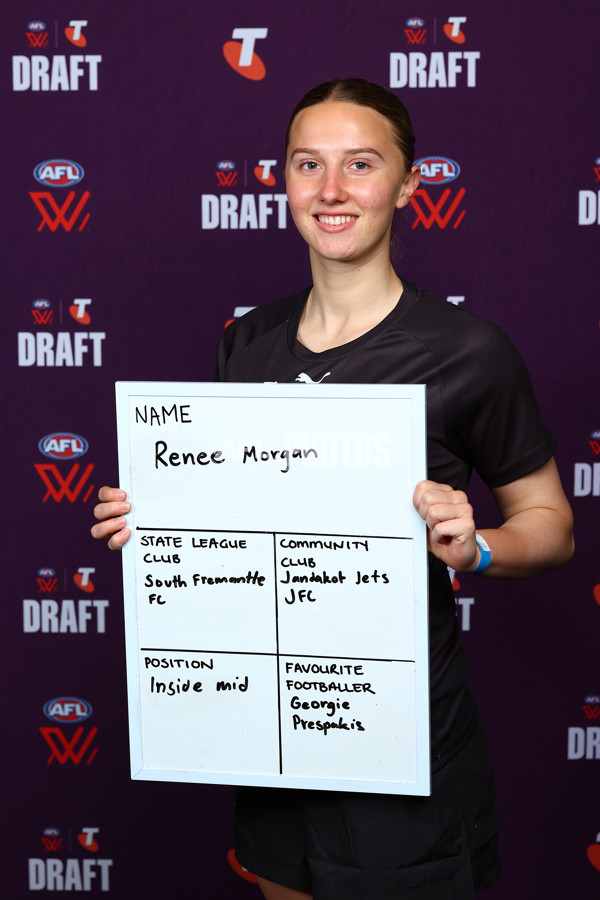 DRAFT
DRAFT
AFL
AFL
DRAFT
DRAFT
DRAFT
AFL
DRAFT
AFL
DRAFT
NAME
Renee Morgan
PHOTOS
STATE LEAGUE
CLUB
South Fremantle
FC
COMMUNITY
CLUB
Jandakot Jets
JFC
POSITION
Inside mid
FAVOURITE
FOOTBALLER
Georgie
Prespakis